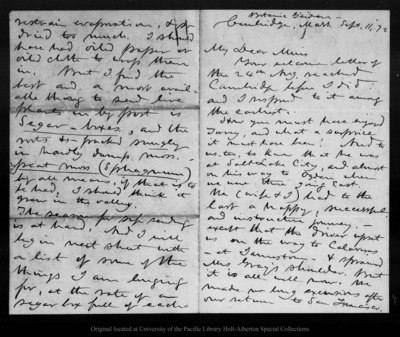 Botanic Garden -
Cambridge, Mass. Sept. 11, 72
My Dear Muir
Your welcome letter of
the 24th Aug. reached
Cambridge before I did:
and I respond to it among
the earliest.
How you must have enjoyed
Torrey, and what a surprise
it must have been! And to
us, too, to know that he was
at Salt Lake City and almost
on his way to Ogden when
we were there going East.
We (wife & I) had to the
last a happy, successful
and instructive journey, -
except that the driver upset
us on the way to Colorado
- at Jamestown - & sprained
Mrs. Gray's shoulder. But
it is all well now. We
made no long excursions after
our return to San Francisco.
restrain evaporation, &
dried too much. I should
have had oiled paper or
oiled cloth to wrap them
in. But I find the
best and a most avail-
able thing to send live
plants in by post is
Sugar-boxes, and the
roots &c packed snugly
in hardly damp moss.
(Sphagnum)
by all means, if that is to
be had. I should think it
grew in the valley.
The season for sending
is at hand. And I will
begin next sheet with
a list of some of the
things I am longing
for, at the rate of a
sugar box full of each
Original located at University of the Pacific Library Holt-Atherton Special Collections